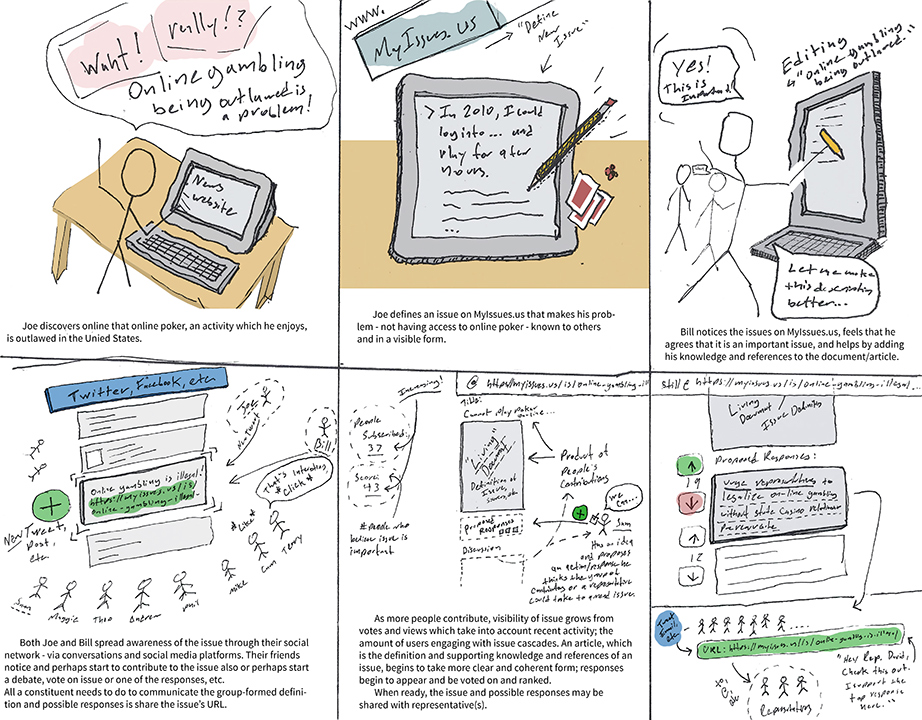 What!
really!?
Online gambling
being outlawed is
a problem!
News
website
Joe discovers online that online poker, an activity which he enjoys,
is outlawed in the Unied States.
www.
MyIssues.us
"Define
New
Issue"
> In 2010, I could
log into... and
play for a few
hours.
...
Joe defines an issue on MyIssues.us that makes his prob-
lem - not having access to online poker - known to others
and in a visible form.
Yes!
This is
Important!
Editing
"Online gambling
being outlawed"
Let me make
this description
better...
Bill notices the issues on MyIssues.us, feels that he
agrees that it is an important issue, and helps by adding
his knowledge and references to the document/article.
Twitter, Facebook, etc
Joe,
via Tweet
Bill
Online gambling is illegal!
https://myissues.us/is/
online-gambling-illegal-
That's Interesting
*Click*
*Like*
New Tweet,
Post,
etc.
Sam
Maggie
Theo
Andrew
Phil
Mike
Cam
Terry
Both Joe and Bill spread awareness of the issue through their social
network - via conversations and social media platforms. Their friends
notice and perhaps start to contribute to the issue also or perhaps start
a debate, vote on issue or one of the responses, etc.
All a constituent needs to do to communicate the group-formed defini-
tion and possible responses is share the issue's URL.
Increasing!
@ https://myissues.us/is/online-gambling-ill
Title:
Cannot play poker
online...
People
Subscribed:
37
Score:
43
# people who
believe issue is
important
"Living"
Document
Definition of
Issue,
Product of
People's
Contributions
Proposed
Responses
Discussion
we
can...
Sam
Has an idea
and proposes
an action/response he
thinks the group of
Contributors or a representative
could take to amend issue.
As more people contribute, visibility of issue grows from
votes and views which take into account recent activity; the
amount of users engaging with issue cascades. An article, which
is the definition and supporting knowledge and references of an
issue, begins to take more clear and coherent form; responses
begin to appear and be voted on and ranked.
When ready, the issue and possible responses may be
shared with representative(s).
still @ https://myissues.us/is/online-gambling-illegal...
Living
Document
Issue Definition
Proposed Responses:
19
Urge representatives to
legalize on-line gambling
without state Casino relations
Prerequisite
12
Tweet,
Email,
etc
URL: https://myissues.us/is/online-gambling-is-illegal
Representatives
"Hey Rep. David,
Check this out.
I support the
top response
here."